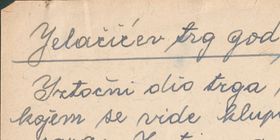 Jelačićev trg god
Iztočni dio trga
kojem se vide klup